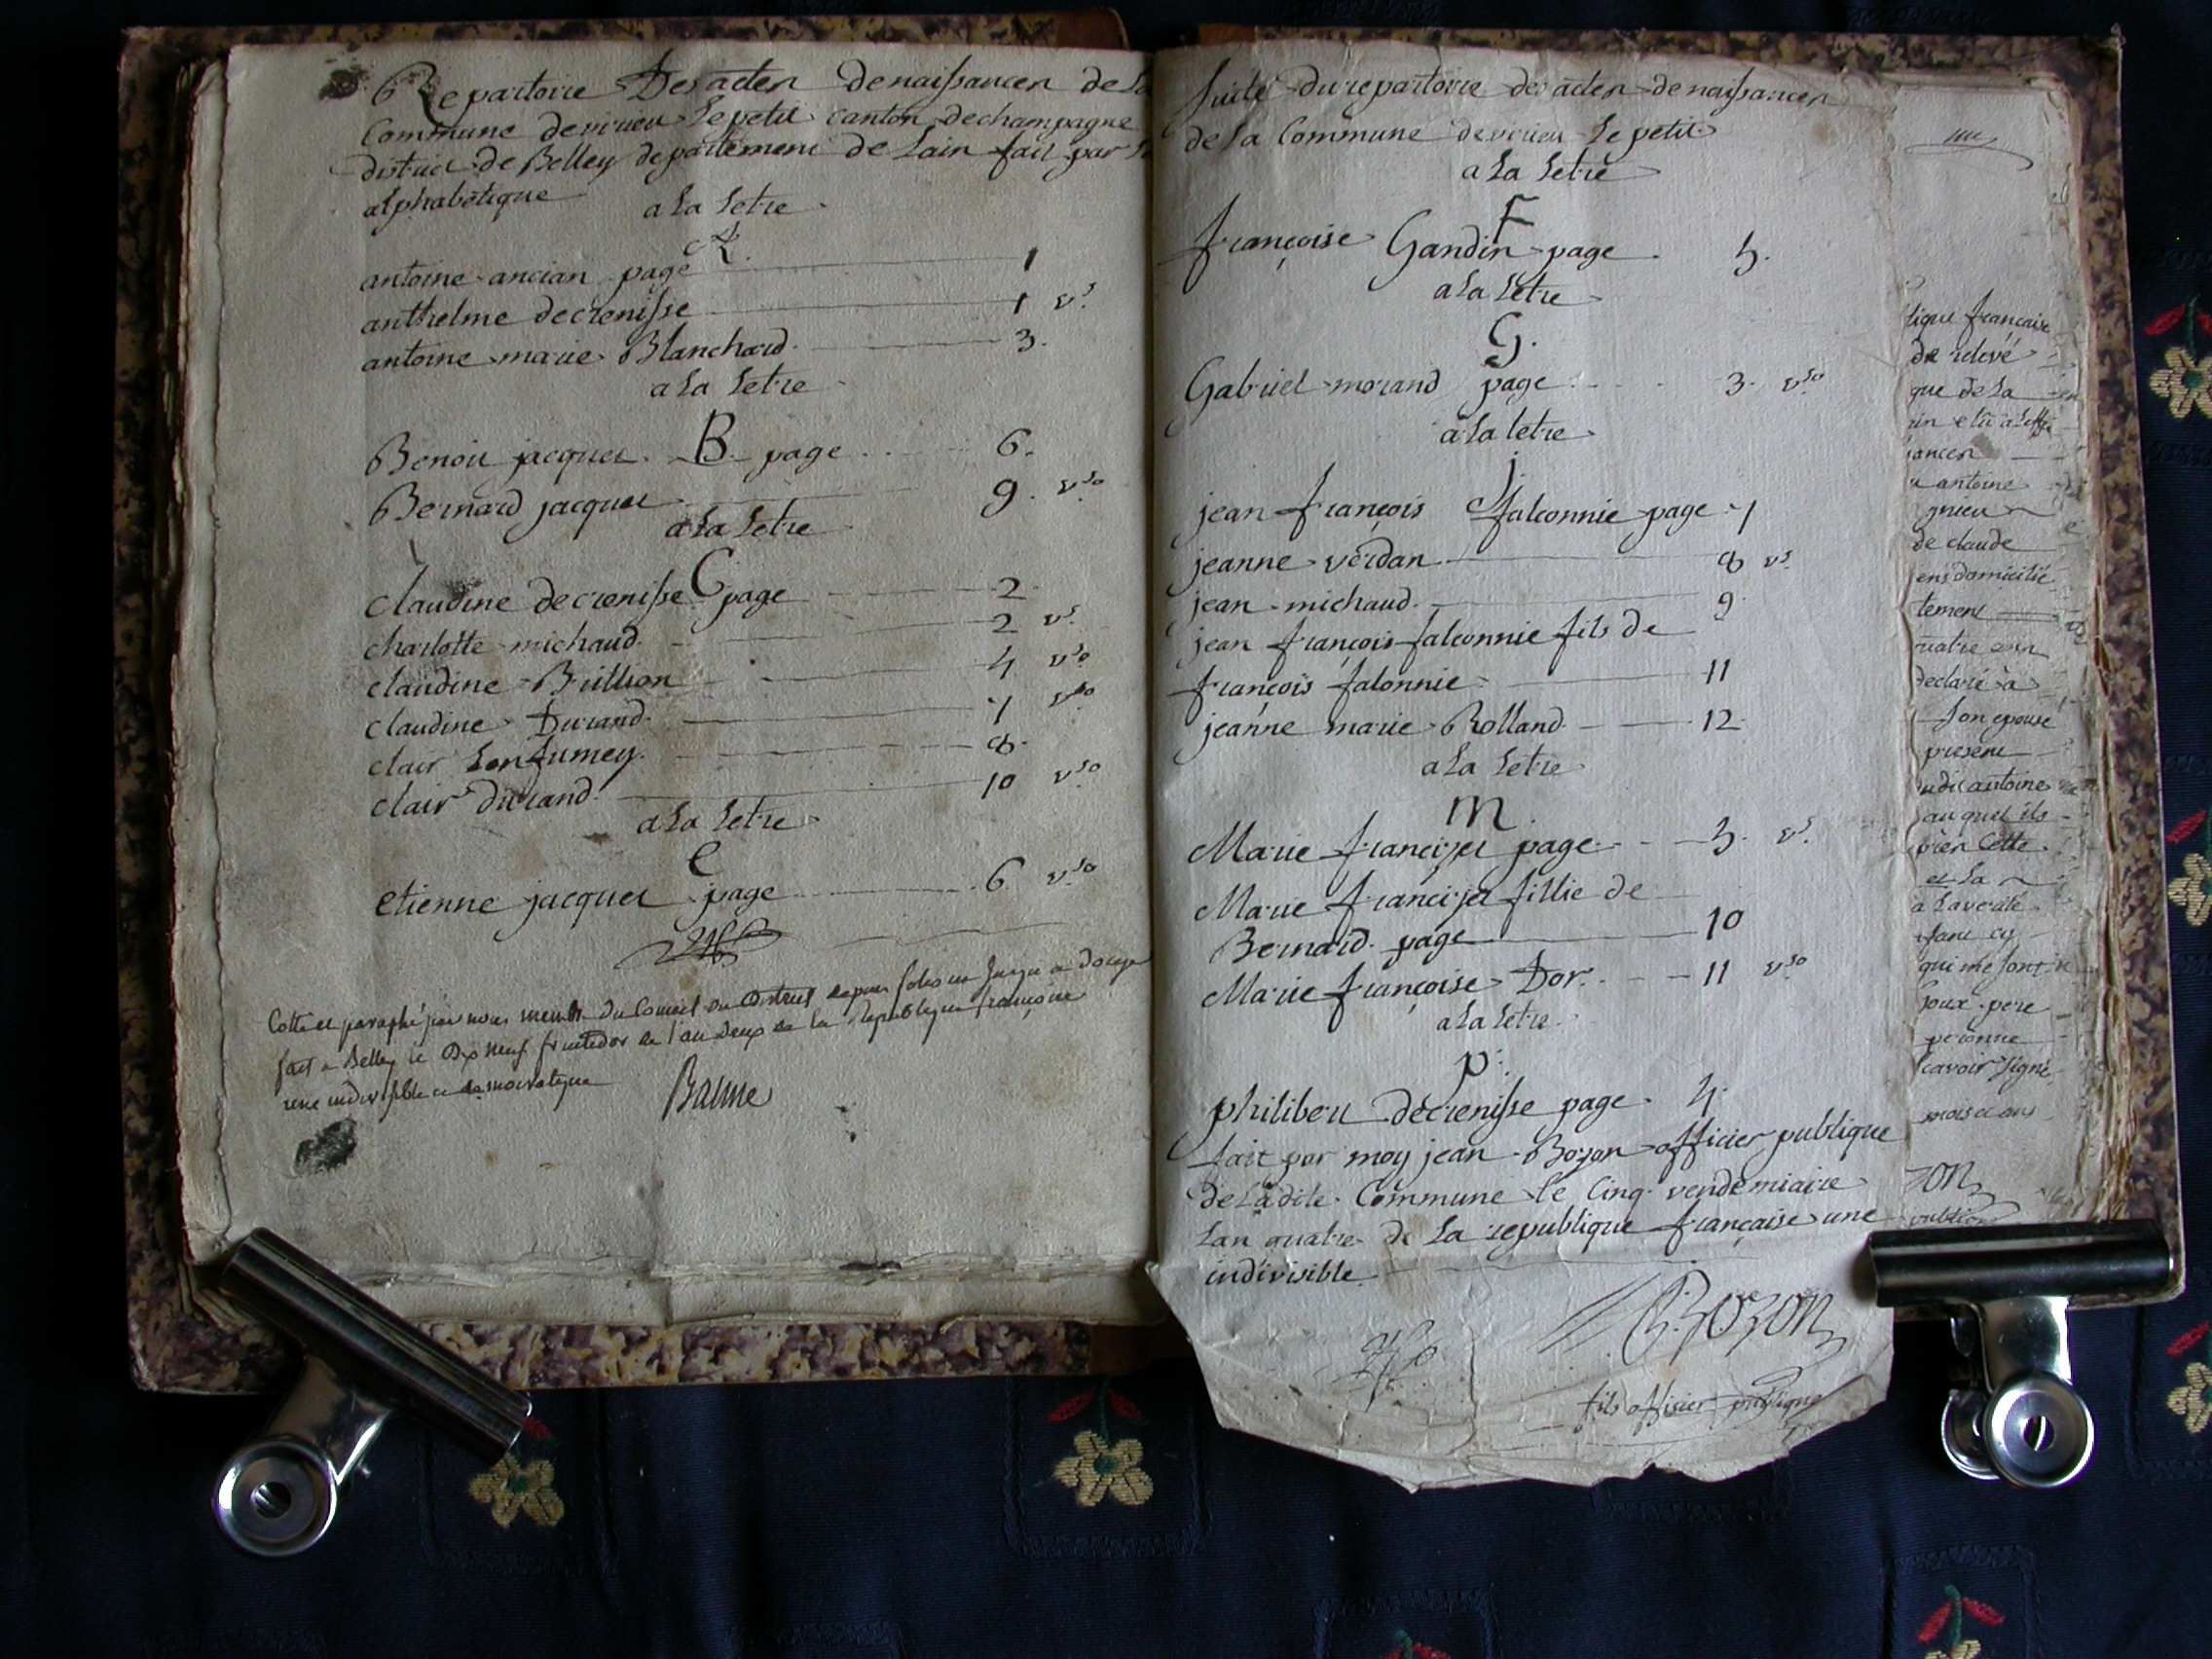 Repartoire Des acten de naissancen de La
Commune de virieu Le petit canton de champagne
district de Belley departement de Lain fait par La
alphabetique
a La Letre
A.
antoine ancian page 1
anthelme decrenisse 1 vs.
antoine marie Blanchard. 3.
a La Letre
B.
Benoit jacquet. page 6.
Bernard jacquet 9. vso
a La Letre
C
claudine decrenisse page 2.
charlotte michaud. 2 vs.
claudine Brillion 4 vso
claudine Durand. 7 vso
clair Lonfumey. 8.
clair durand. 10 vso
a La Letre
e
etienne jacquet page 6 vso
Cotté et paraphé par nous membre du Conseil du District depuis folio un Jusqu'a douze
fait a Belley le Dix Neuf fructidor de l'an deux de la Republique françoise
une indivisible et democratique
Balme
Suite du repartoire des acten de naissancen
de La Commune de virieu Le petit
a La Letre
F
françoise Gandin page 5.
a La Letre
G.
Gabriel morand page 3. vso
a La letre
j
jean françois falconnie page 7
jeanne verdan 8 vs.
jean michaud. 9.
jean françois falconnie fils de
françois falonnie 11
jeanne marie Rolland. 12.
a La Letre
m
Marie francizet page 5. vs.
Marie francizet fillie de
Bernard page 10
Marie françoise Dor. 11 vso
a La Letre
p.
philibert decrenisse page 4.
fait par moy jean Bozon officier publique
de Ladite Commune le Cinq vendemiaire
Lan quatre de La republique française une
indivisible
Bozon
fils officier publique
tique francaise
de relevé
que de La
ancen
antoine
gnieu
de claude
ens domicilié
tement
uatre
declaré a
Son epouse
presene
udit antoine
auquel ils
cette
et La
a Laverite
qui me sont
Joux pere
personne
scavoir signé
mois et ans
zon